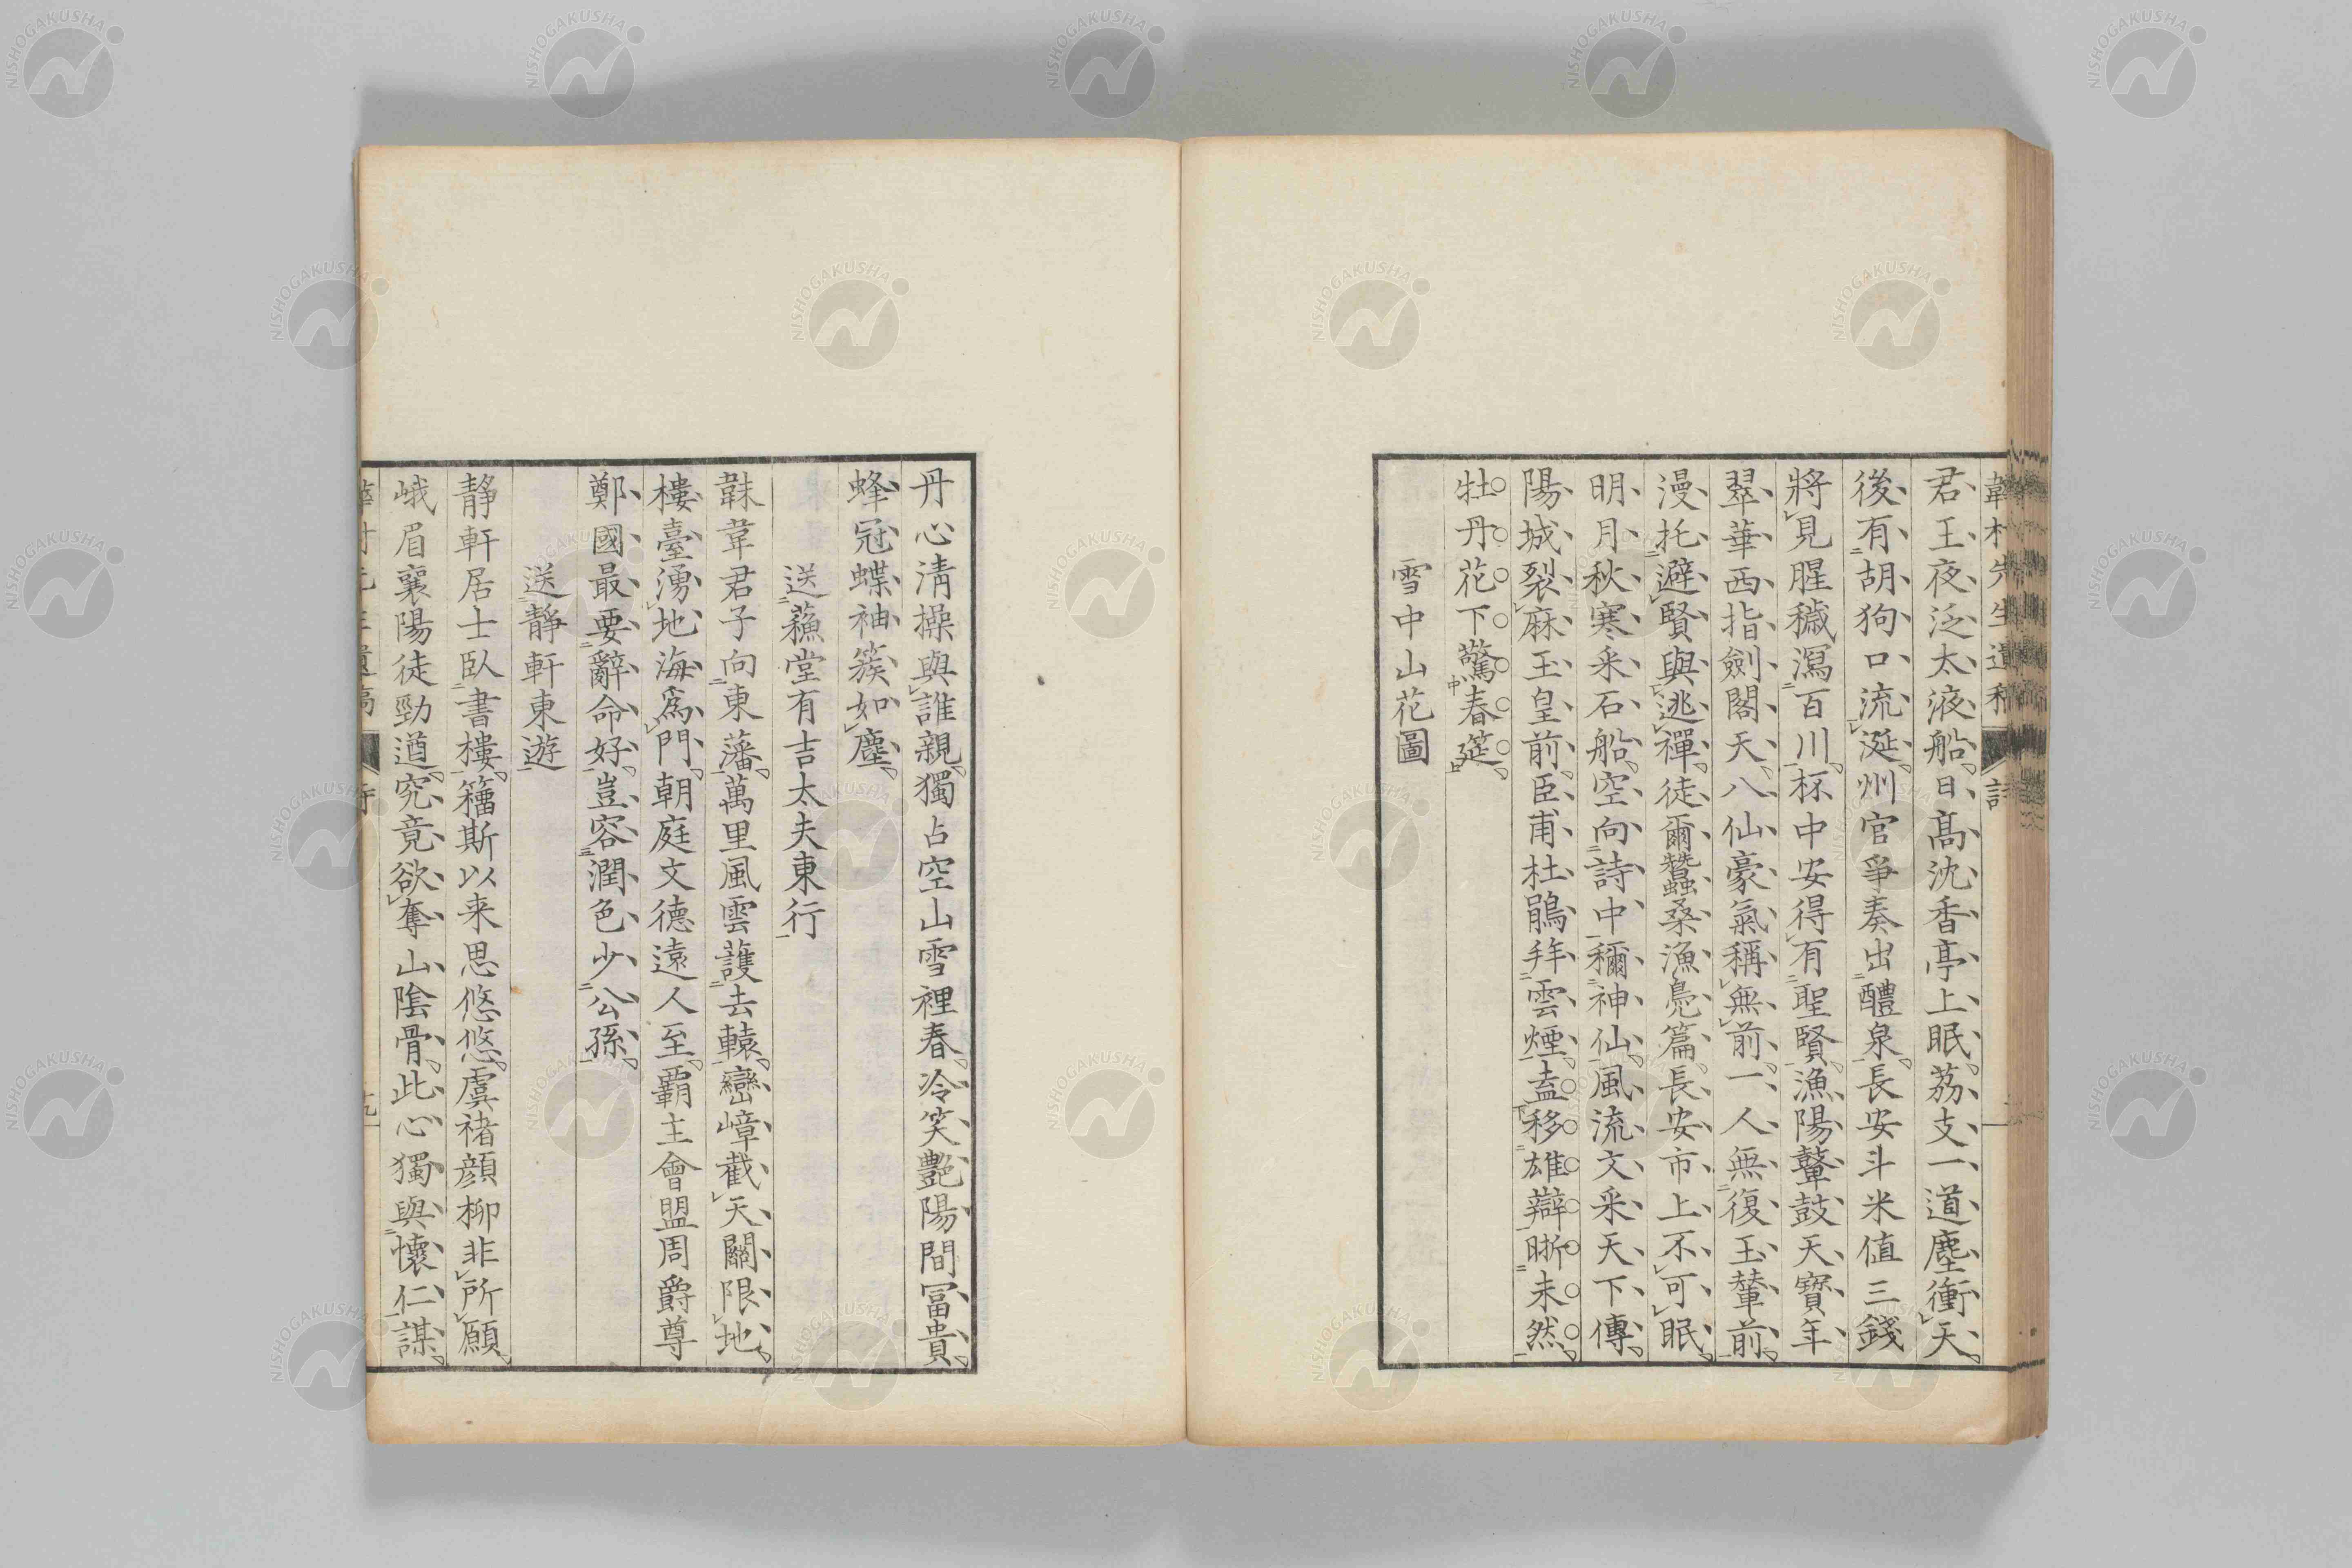 君王夜泛太液船日高沈香亭上眠荔支一道塵衝天
後有胡狗口流涎州官爭奏出醴泉長安斗米値三錢
將見腥穢瀉百川杯中安得有聖賢漁陽鼙鼓天寶年
翠華西指劍閣天八仙豪氣稱無前一人無復玉輦前
漫托避賢與逃禪徒爾蠶桑漁鳧篇長安市上不可眠
明月秋寒采石船空向詩中稱神仙風流文采天下傳
陽城裂麻玉皇前臣甫杜鵑拜雲煙盍移雄辯晰未然
牡丹花下驚春筵
雪中山花圖
丹心淸操與誰親獨占空山雪裡春冷笑艷陽間冨貴
蜂冠蝶袖簇如塵
送蘓堂有吉太夫東行
韎韋君子向東藩萬里風雲護去轅巒嶂截天關限地
樓臺湧地海爲門朝庭文德遠人至覇主會盟周爵尊
鄭國最要辭命好豈容潤色少公孫
送靜軒東遊
静軒居士臥書樓籀斯以来思悠悠虞褚顔柳非所願
峨眉襄陽徒勁遒究竟欲奪山陰骨此心獨與懷仁謀
NISHOGAKUSHA